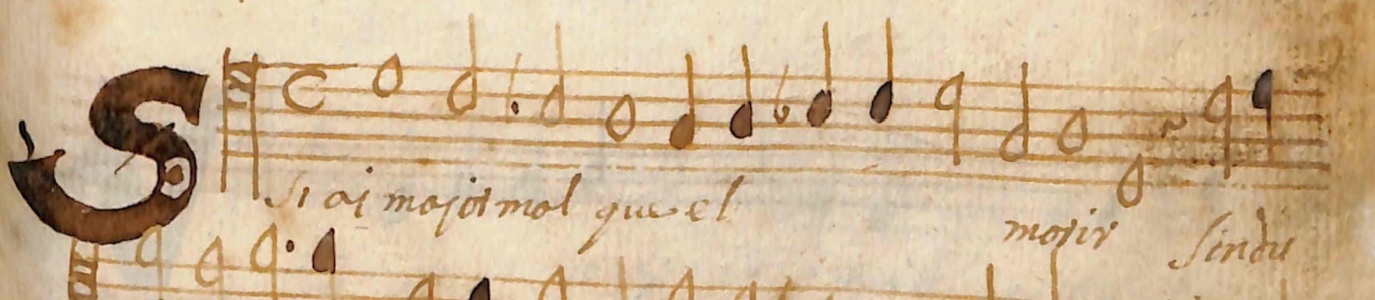 Si ai major mal que el morir Sindu